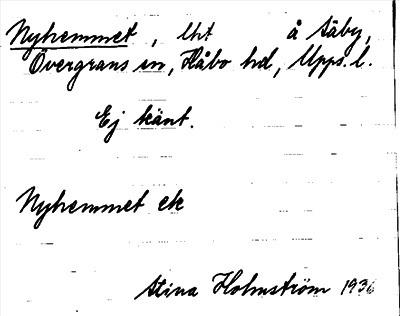 Nyhemmet, lht å Säby,
Övergrans sn, Håbo hd, Upps. l.
Ej känt.
Nyhemmet ek
Stina Holmström 1936